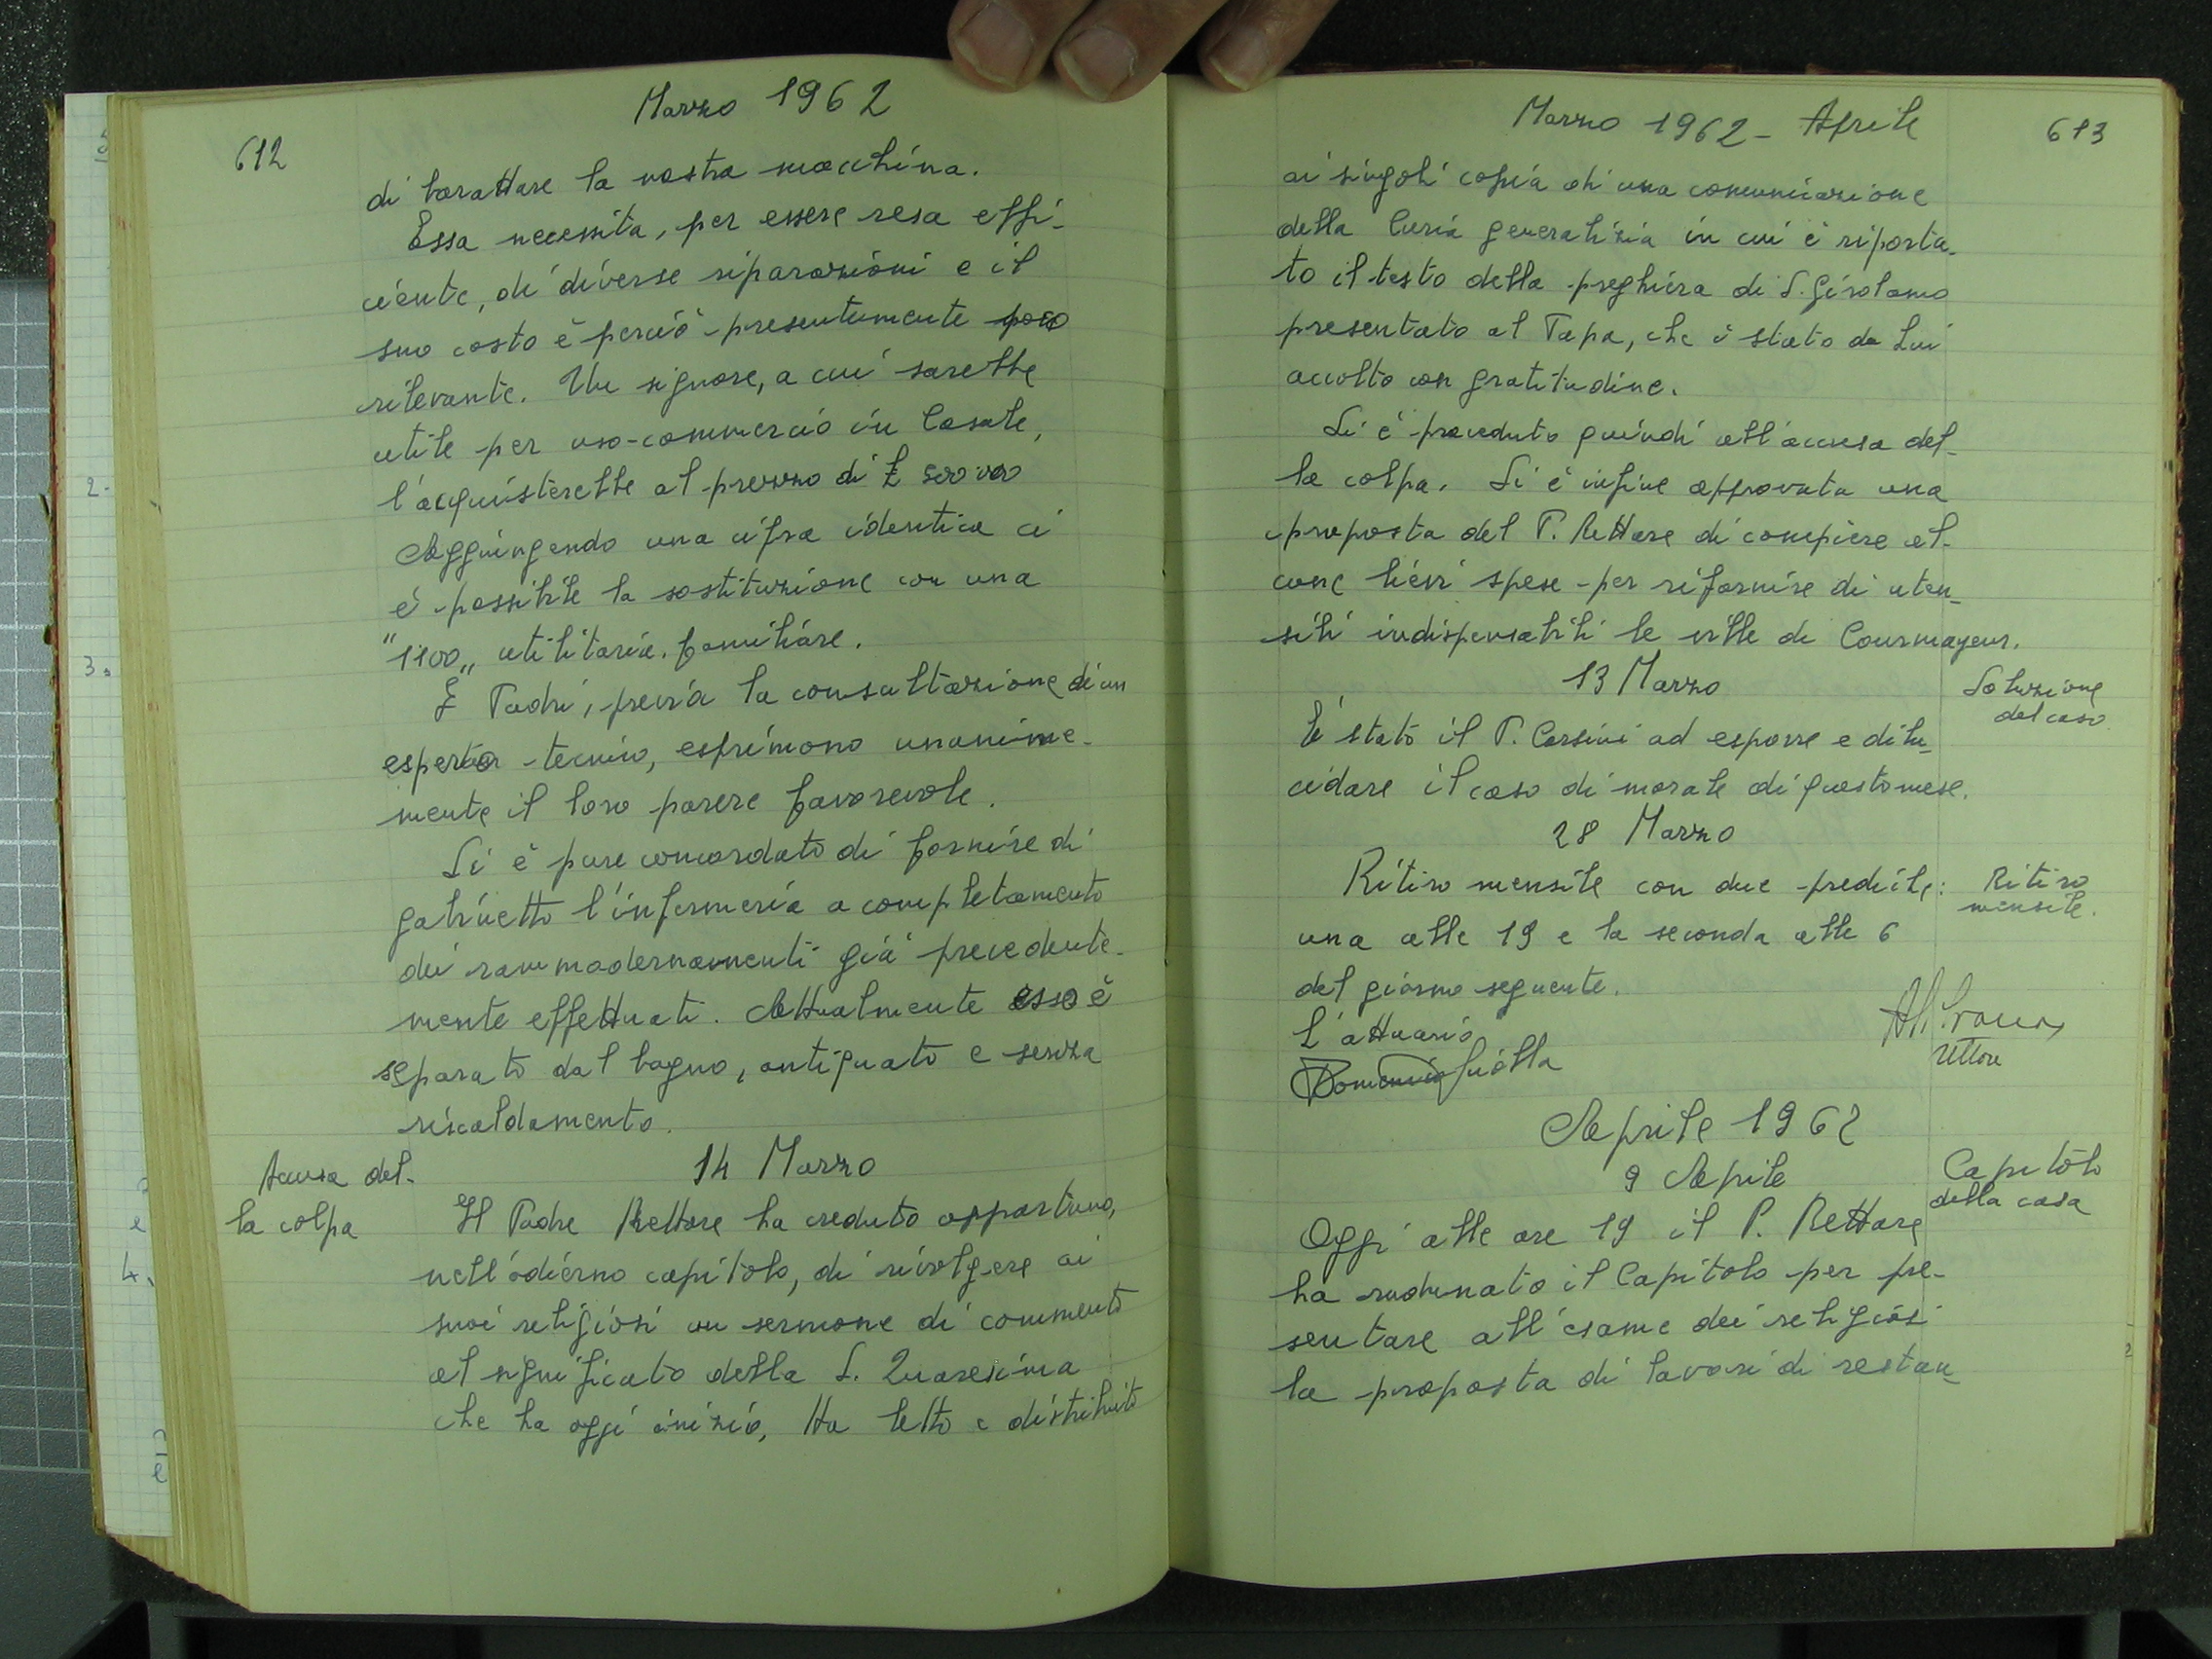 Marzo 1962
612
di barattare la nostra macchina.
Essa necessita, per essere resa effi-
ciente, di diverse riparazioni e il
suo costo è perciò presentemente poco
rilevante. Un signore, a cui sarebbe
utile per uso-commercio in Casale,
l'acquisterebbe al prezzo di £ 500.000
Aggiungendo una cifra identica ci
è possibile la sostituzione con una
"1100„ utilitaria. familiare.
I Padri, previa la consultazione di un
esperto tecnico, esprimono unanime-
mente il loro parere favorevole.
Si è pure concordato di fornire di
gabinetto l'infermeria a completamento
dei rammodernamenti già precedente-
mente effettuati. Attualmente esso è
separato dal bagno, antiquato e senza
riscaldamento.
14 Marzo
Accusa del-
la colpa
Il Padre Rettore ha creduto opportuno,
nell'odierno capitolo, di rivolgere ai
suoi religiosi un sermone di commento
al significato della S. Quaresima
che ha oggi inizio, Ha letto e distribuito
Marzo 1962 - Aprile
613
ai singoli copia di una comunicazione
della Curia generalizia in cui è riporta-
to il testo della preghiera di S. Girolamo
presentato al Papa, che è stato da Lui
accolto con gratitudine.
Si è proceduto quindi all'accusa del-
la colpa. Si è infine approvata una
proposta del P. Rettore di compiere al-
cune lievi spese per rifornire di uten-
sili indispensabili le ville di Courmayeur.
13 Marzo
Soluzione
del caso
È stato il P. Corsini ad esporre e dilu-
cidare il caso di morale di questo mese.
28 Marzo
Ritiro mensile con due prediche:
Ritiro
mensile.
una alle 19 e la seconda alle 6
del giorno seguente.
L'attuario
Domenico
Rettore
Aprile 1962
9 Aprile
Capitolo
della casa
Oggi alle ore 19 il P. Rettore
ha radunato il Capitolo per pre-
sentare all'esame dei religiosi
la proposta di lavori di restau-